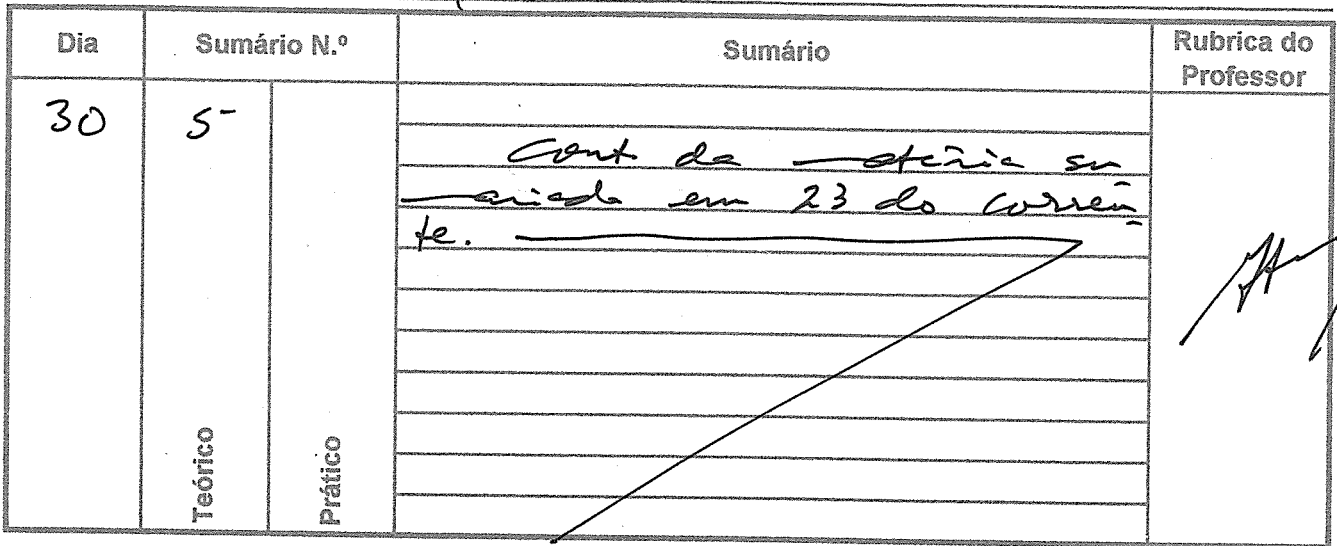 Dia Sumário N.º Sumário Rubrica do Professor
30 5
Teórico Prático
Cont da matéria su
mariada em 23 do corren
te.